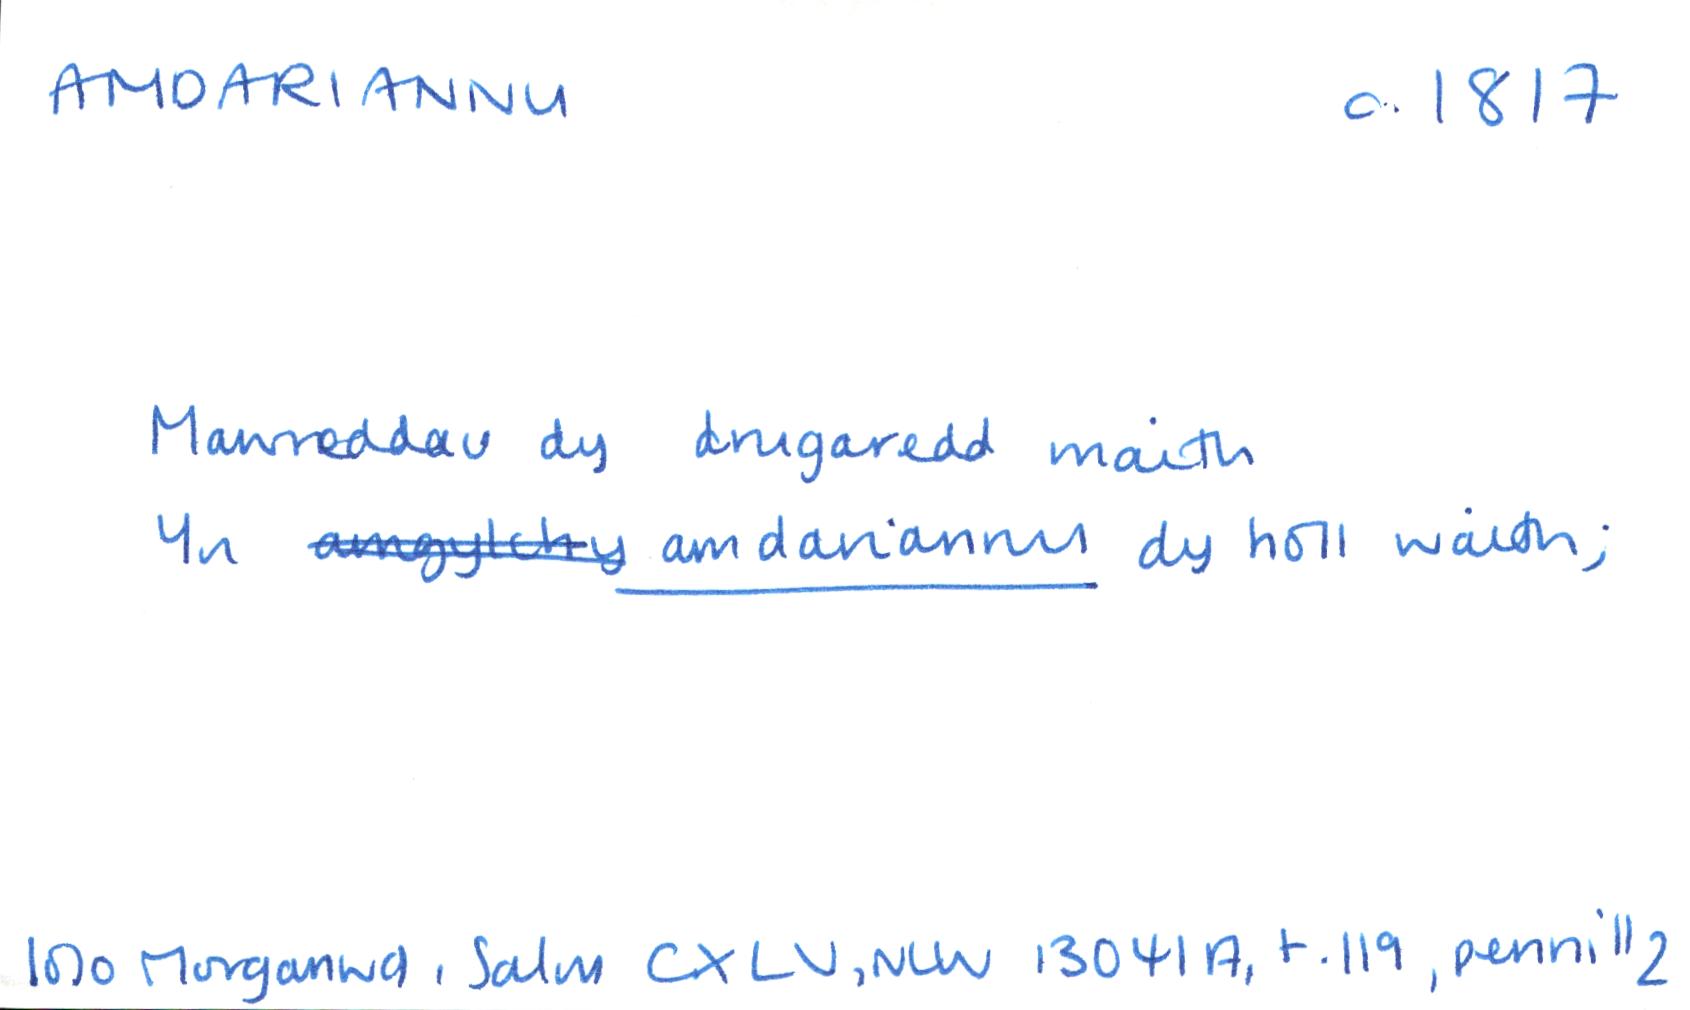 AMDARIANNU c. 1817
Mawreddau dy drugaredd maith
Yn amgylchy amdariannu dy holl waith;
Iolo Morganwg, Salm CXLV, NLW 13041A, t.119, pennill 2